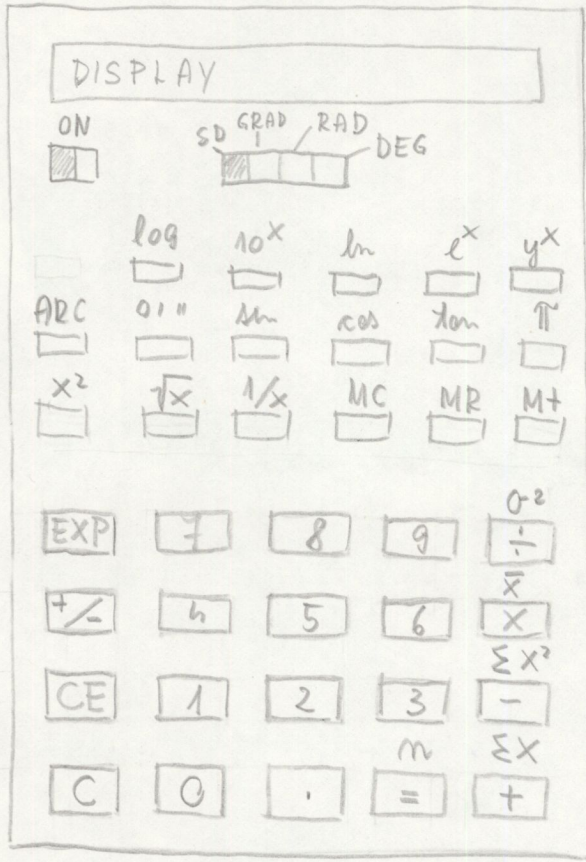 DISPLAY
ON SD GRAD RAD DEG
log 10ˣ ln eˣ yˣ
ARC 0 ' " sin cos tan π
x² √x 1/x MC MR M+
σ²
EXP 7 8 9 ÷
x̄
+/- 4 5 6 ×
Σx²
CE 1 2 3 -
n Σx
C 0 . = +